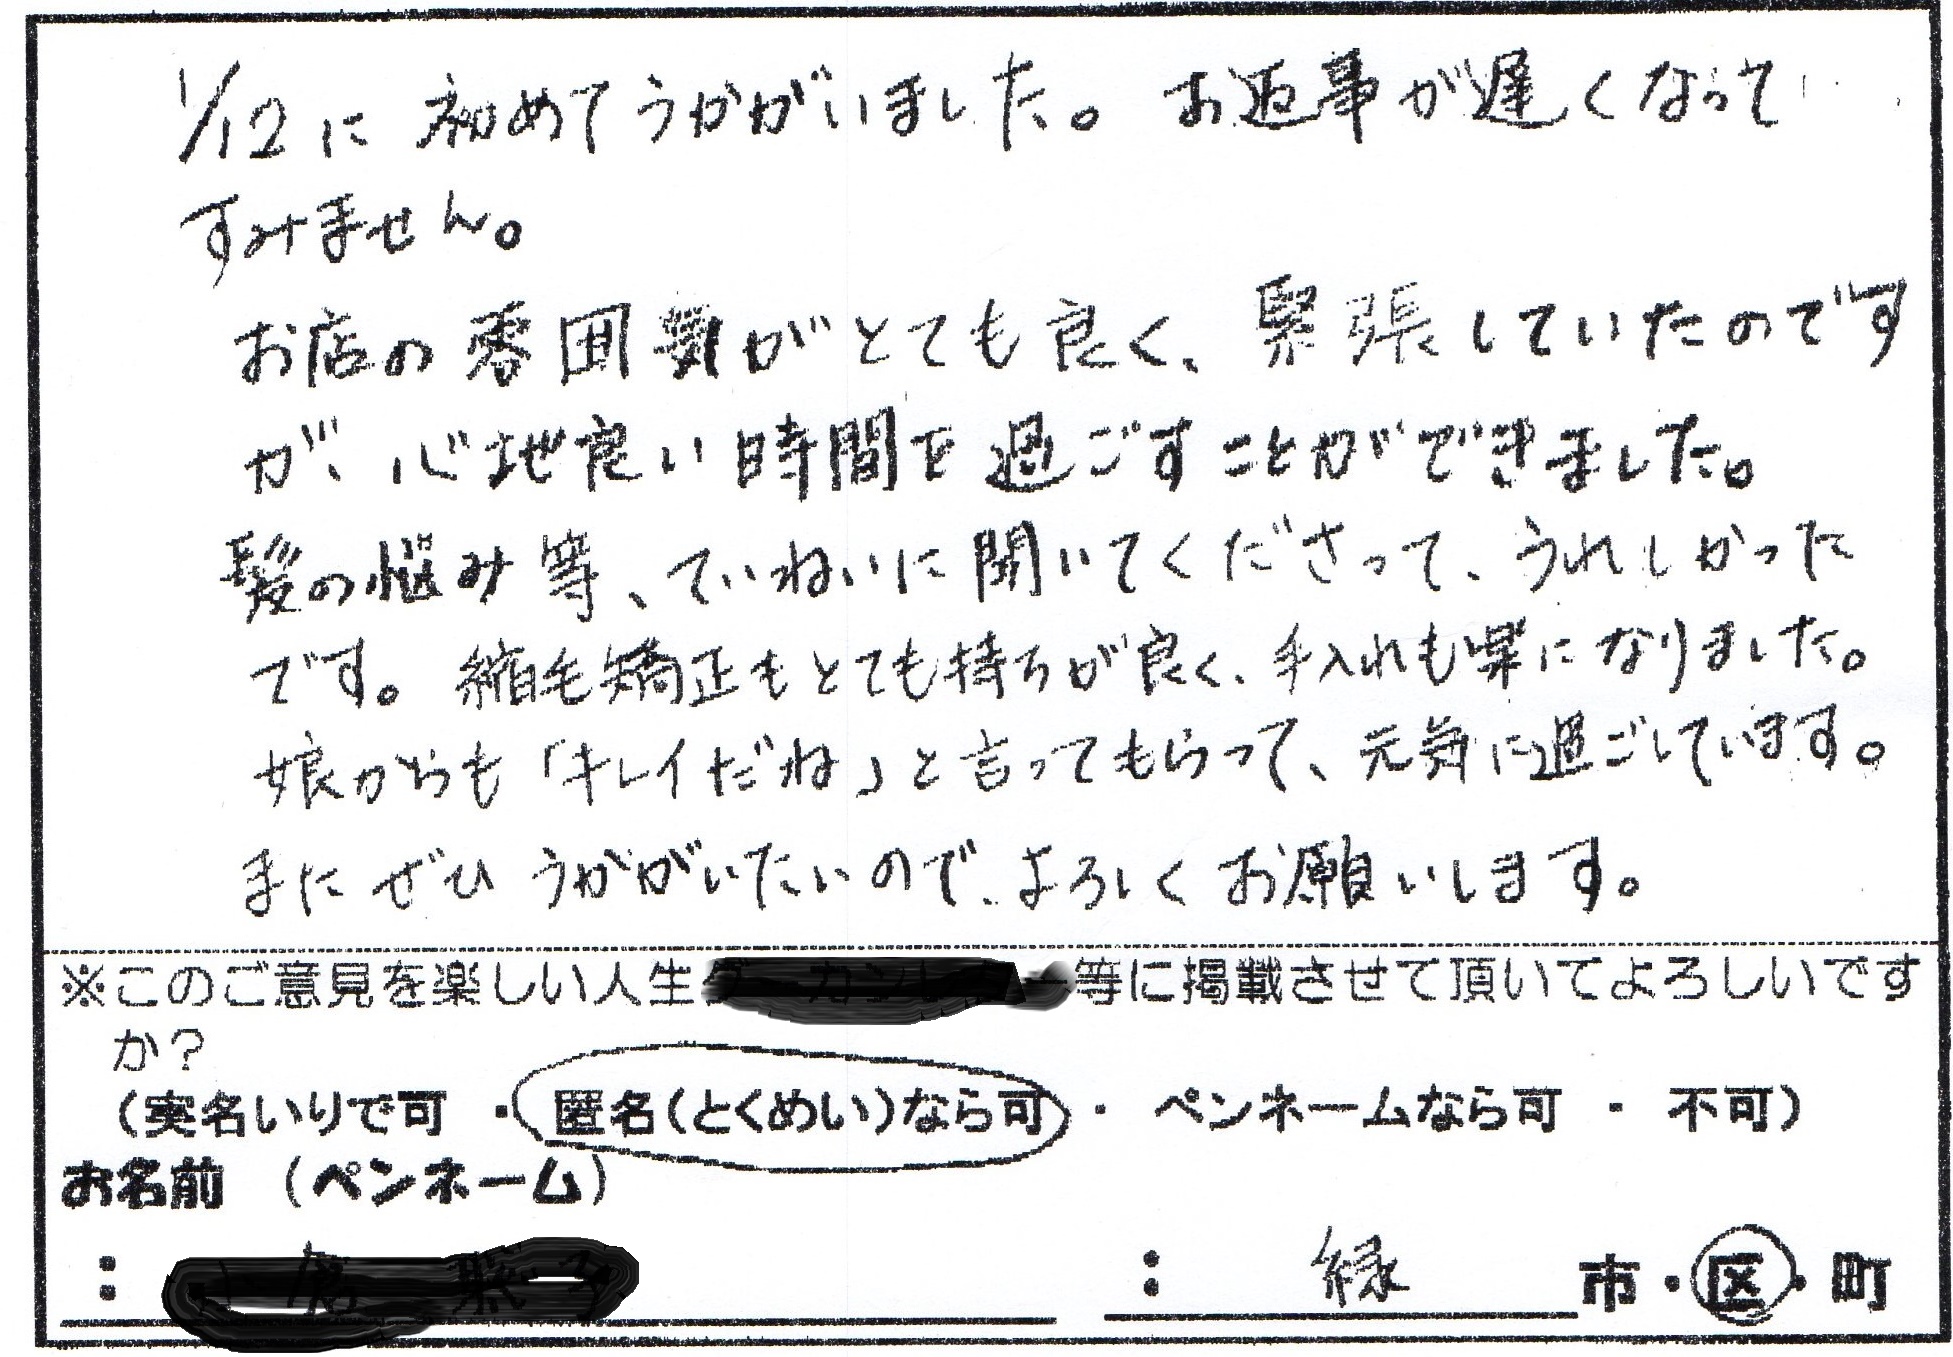 1/12に初めてうかがいました。お返事が遅くなって
すみません。
お店の雰囲気がとても良く、緊張していたのです
が、心地良い時間を過ごすことができました。
髪の悩み等、ていねいに聞いてくださって、うれしかった
です。縮毛矯正もとても持ちが良く、手入れも楽になりました。
娘からも「キレイだね」と言ってもらって、元気に過ごしています。
またぜひうかがいたいので、よろしくお願いします。
※このご意見を楽しい人生 等に掲載させて頂いてよろしいです
か？
（実名いりで可 ・ 匿名（とくめい）なら可 ・ ペンネームなら可 ・ 不可）
お名前 （ペンネーム）
： ： 緑 市・区・町